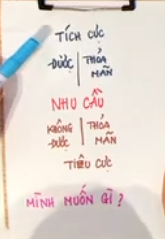 TÍCH CỰC
ĐƯỢC | THỎA MÃN
NHU CẦU
KHÔNG ĐƯỢC | THỎA MÃN
TIÊU CỰC
MÌNH MUỐN GÌ?